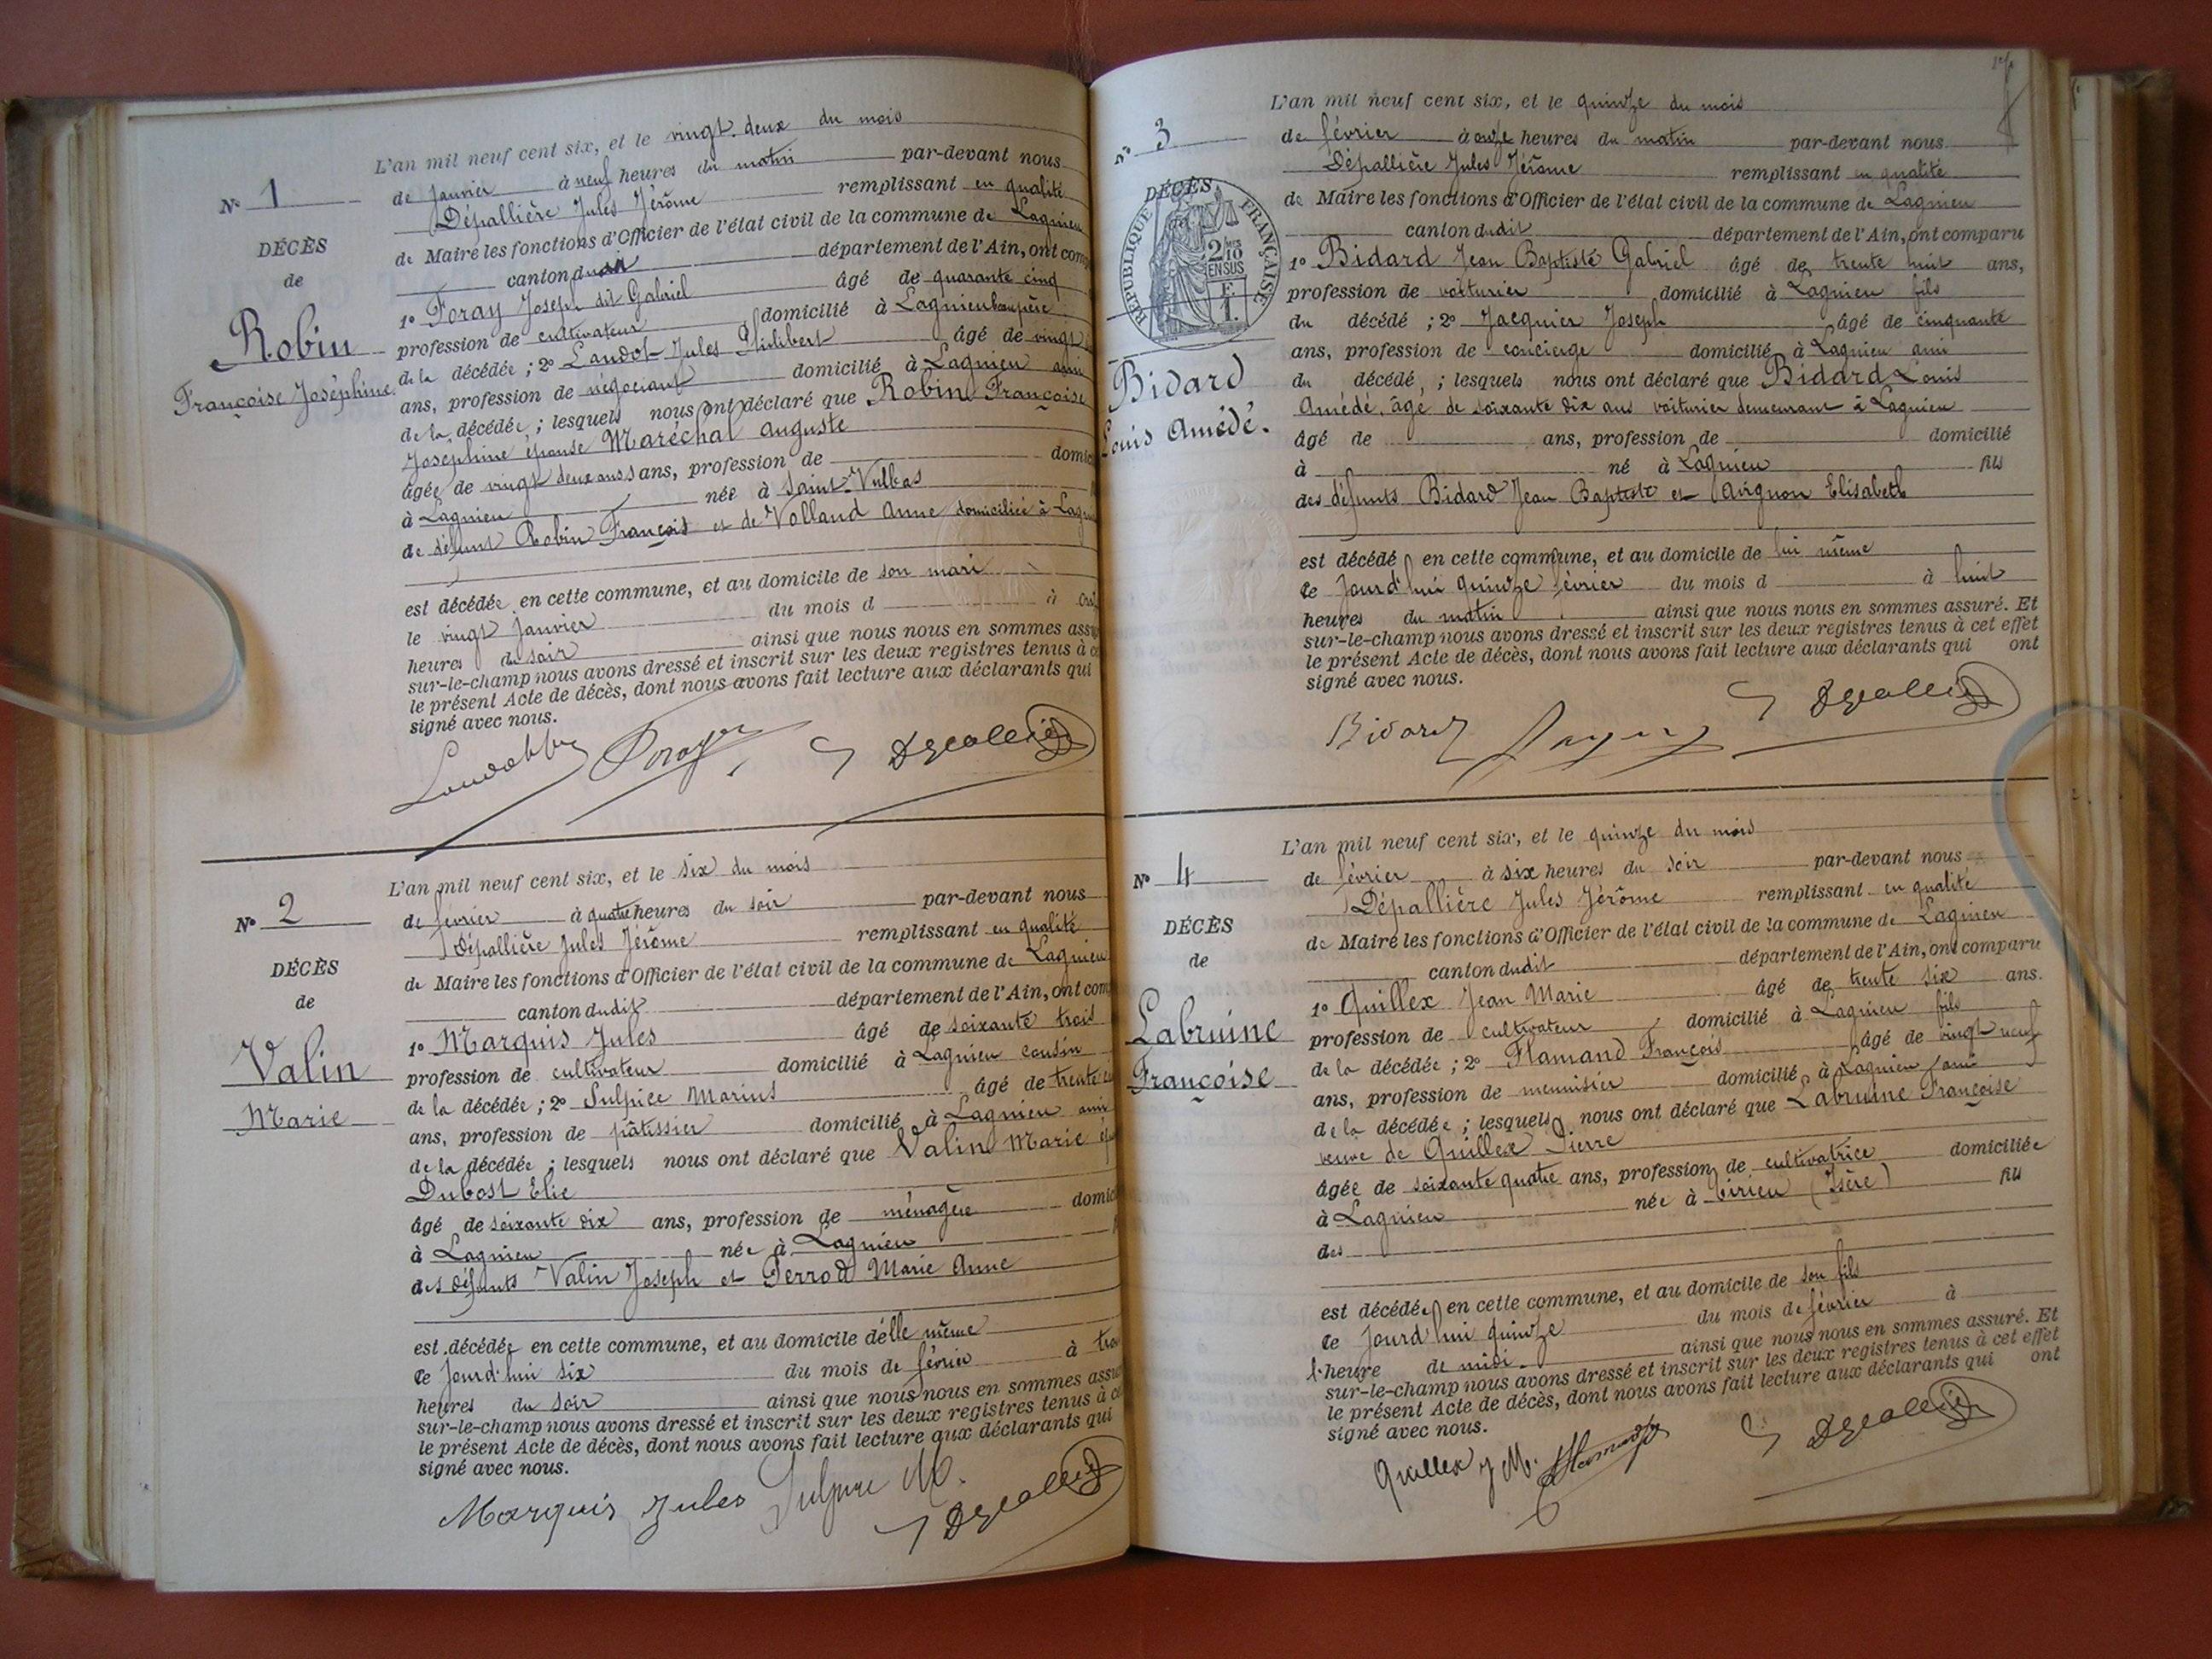 L'an mil neuf cent six, et le vingt-deux du mois
de janvier à neuf heures du matin par-devant nous
Dépallière Jules Jérôme remplissant en qualité
de Maire les fonctions d'Officier de l'état civil de la commune de Lagnieu
canton dudit département de l'Ain, ont com
1º Foray Joseph dit Gabriel âgé de quarante cinq
profession de cultivateur domicilié à Lagnieu beaupère
de la décédée ; 2º Landot Jules Philibert âgé de vingt
ans, profession de négociant domicilié à Lagnieu ami
de la décédée ; lesquels nous ont déclaré que Robin Françoise
Joséphine épouse Maréchal Auguste
âgée de vingt deux ans ans, profession de domic
à Lagnieu née à Saint-Vulbas
de défunt Robin François et de Volland Anne domiciliée à Lagn
est décédée en cette commune, et au domicile de son mari
le vingt janvier du mois d à
heures du soir ainsi que nous nous en sommes assu
sur-le-champ nous avons dressé et inscrit sur les deux registres tenus à ce
le présent Acte de décès, dont nous avons fait lecture aux déclarants qui
signé avec nous.
Nº 1
DÉCÈS
de
Robin
Françoise Joséphine
L'an mil neuf cent six, et le six du mois
de février à quatre heures du soir par-devant nous
Dépallière Jules Jérôme remplissant en qualité
de Maire les fonctions d'Officier de l'état civil de la commune de Lagnieu
canton dudit département de l'Ain, ont com
1º Marquis Jules âgé de soixante trois
profession de cultivateur domicilié à Lagnieu cousin
de la décédée ; 2º Sulpice Marius âgé de trente
ans, profession de pâtissier domicilié à Lagnieu ami
de la décédée ; lesquels nous ont déclaré que Valin Marie ép
Dubost Elie
âgé de soixante dix ans, profession de ménagère domic
à Lagnieu née à Lagnieu
des défunts Valin Joseph et Perrod Marie Anne
est décédée en cette commune, et au domicile d'elle même
ce jourd'hui six du mois de février à tro
heures du soir ainsi que nous nous en sommes assu
sur-le-champ nous avons dressé et inscrit sur les deux registres tenus à ce
le présent Acte de décès, dont nous avons fait lecture aux déclarants qui
signé avec nous.
Marquis Jules Sulpice M.
Nº 2
DÉCÈS
de
Valin
Marie
L'an mil neuf cent six, et le quinze du mois
de février à onze heures du matin par-devant nous
Dépallière Jules Jérôme remplissant en qualité
de Maire les fonctions d'Officier de l'état civil de la commune de Lagnieu
canton dudit département de l'Ain, ont comparu
1º Bidard Jean Baptiste Gabriel âgé de trente huit ans,
profession de voiturier domicilié à Lagnieu fils
du décédé ; 2º Jacquier Joseph âgé de cinquante
ans, profession de concierge domicilié à Lagnieu ami
du décédé ; lesquels nous ont déclaré que Bidard Louis
Amédé, âgé de soixante dix ans voiturier demeurant à Lagnieu
âgé de ans, profession de domicilié
à né à Lagnieu fils
des défunts Bidard Jean Baptiste et Avignon Elisabeth
est décédé en cette commune, et au domicile de lui même
ce jourd'hui quinze février du mois d à huit
heures du matin ainsi que nous nous en sommes assuré. Et
sur-le-champ nous avons dressé et inscrit sur les deux registres tenus à cet effet
le présent Acte de décès, dont nous avons fait lecture aux déclarants qui ont
signé avec nous.
Bidard
Nº 3
DÉCÈS
RÉPUBLIQUE FRANÇAISE
2/10
EN SUS
Bidard
Louis Amédé.
L'an mil neuf cent six, et le quinze du mois
de février à six heures du soir par-devant nous
Dépallière Jules Jérôme remplissant en qualité
de Maire les fonctions d'Officier de l'état civil de la commune de Lagnieu
canton dudit département de l'Ain, ont comparu
1º Quillex Jean Marie âgé de trente six ans.
profession de cultivateur domicilié à Lagnieu fils
de la décédée ; 2º Flamand François âgé de vingt neuf
ans, profession de menuisier domicilié à Lagnieu ami
de la décédée ; lesquels nous ont déclaré que Labruine Françoise
veuve de Quillex Pierre
âgée de soixante quatre ans, profession de cultivatrice domiciliée
à Lagnieu née à (Isère) fils
des
est décédée en cette commune, et au domicile de son fils
ce jourd'hui quinze du mois de février à
l'heure de midi ainsi que nous nous en sommes assuré. Et
sur-le-champ nous avons dressé et inscrit sur les deux registres tenus à cet effet
le présent Acte de décès, dont nous avons fait lecture aux déclarants qui ont
signé avec nous.
Quillex J M.
Nº 4
DÉCÈS
de
Labruine
Françoise